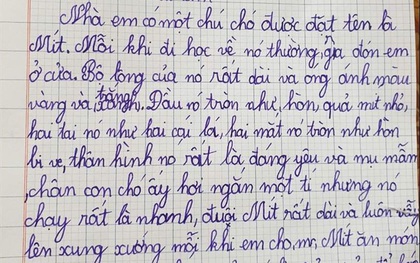 Nhà em có một chú chó được đặt tên là
Mít. Mỗi khi đi học về nó thường gia đón em
ở cửa. Bộ lông của nó rất dài và ong ánh màu
vàng và trắng. Đầu nó tròn như hòn, quả mít nhỏ,
hai tai nó như hai cái lá, hai mắt nó tròn như hòn
bi ve, thân hình nó rất là đáng yêu và mụ mẫm
, chân con chó ấy hơi ngắn một tí nhưng nó
chạy rất là nhanh, đuôi Mít rất dài và luôn vẫy
lên xung xướng mỗi khi em cho, Mít ăn món